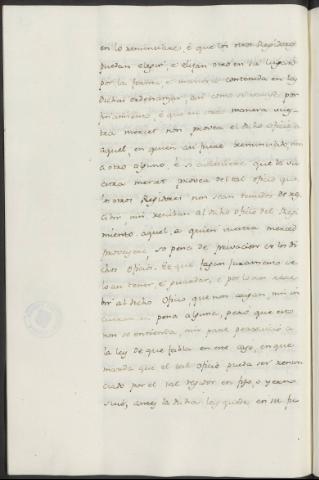 en lo renunciare, é que los otros Regidores
puedan elegir, é elijan otro en su lugar
por la forma, é manera contenida en las
dichas ordenanzas, asi como si vacase por
finamiento, é que en otra manera vues-
tra merced non provea el dicho oficio á
aquel, en quien asi fuere renunciado, nin
á otro alguno. É si acaesciere que vu-
estra merced provea del tal oficio que
los otros Regidores non sean tenudos de re-
cibir nin reciban al dicho oficio del Regi-
miento aquel, á quien vuestra merced
proveyere, so pena de privacion de los di-
chos oficios. É que fagan juramento de
lo asi tener, é guardar, é por lo non rece-
bir al dicho oficio que non cayan, nin in-
curran en pena alguna, pero que esto
non se entienda, nin pare perjuicio á
la ley que fabla en este caso, en que
manda que el tal oficio pueda ser renun-
ciado por el tal Regidor en fijo, ó yerno
suio, antes la dicha ley quede en su fu-